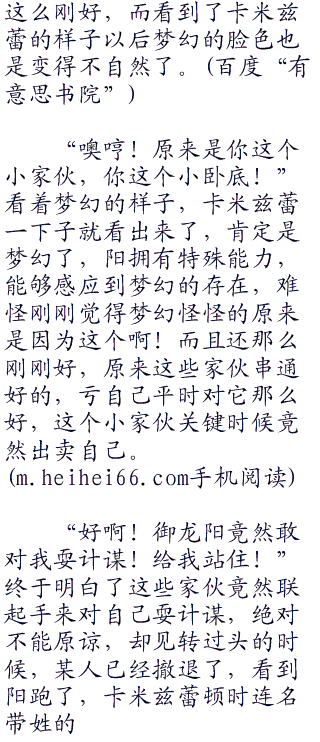 这么刚好，而看到了卡米兹
蕾的样子以后梦幻的脸色也
是变得不自然了。(百度“有
意思书院”)
“噢哼！原来是你这个
小家伙，你这个小卧底！”
看着梦幻的样子，卡米兹蕾
一下子就看出来了，肯定是
梦幻了，阳拥有特殊能力，
能够感应到梦幻的存在，难
怪刚刚觉得梦幻怪怪的原来
是因为这个啊！而且还那么
刚刚好，原来这些家伙串通
好的，亏自己平时对它那么
好，这个小家伙关键时候竟
然出卖自己。
(m.heihei66.com手机阅读)
“好啊！御龙阳竟然敢
对我耍计谋！给我站住！”
终于明白了这些家伙竟然联
起手来对自己耍计谋，绝对
不能原谅，却见转过头的时
候，某人已经撤退了，看到
阳跑了，卡米兹蕾顿时连名
带姓的